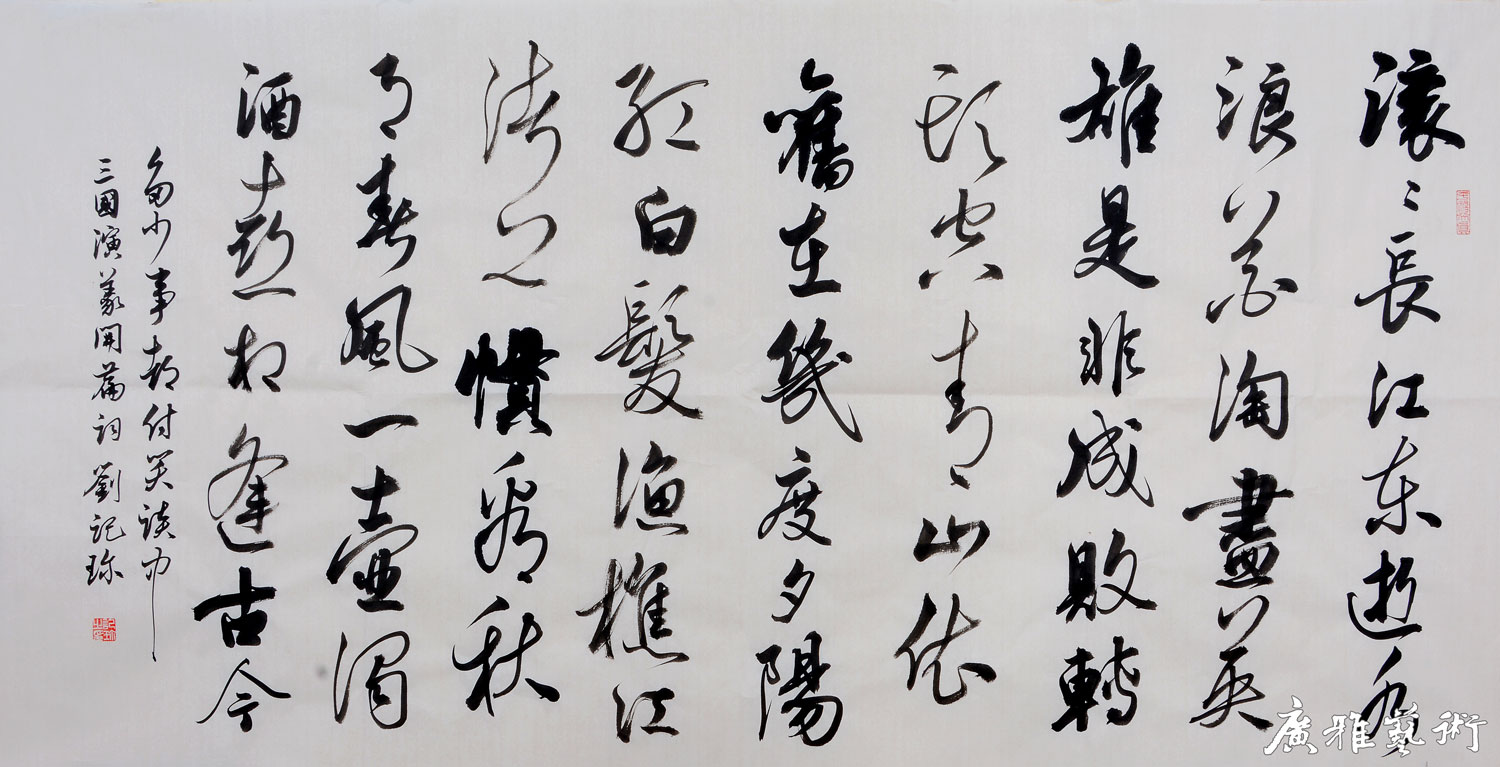 滚〻長江东逝水
浪花淘盡英
雄是非成敗轉
頭空青山依
舊在幾度夕陽
紅白髮漁樵江
渚上慣看秋
月春風一壺濁
酒喜相逢古今
多少事都付笑談中
三國演義開篇詞 劉記珍
廣雅藝術